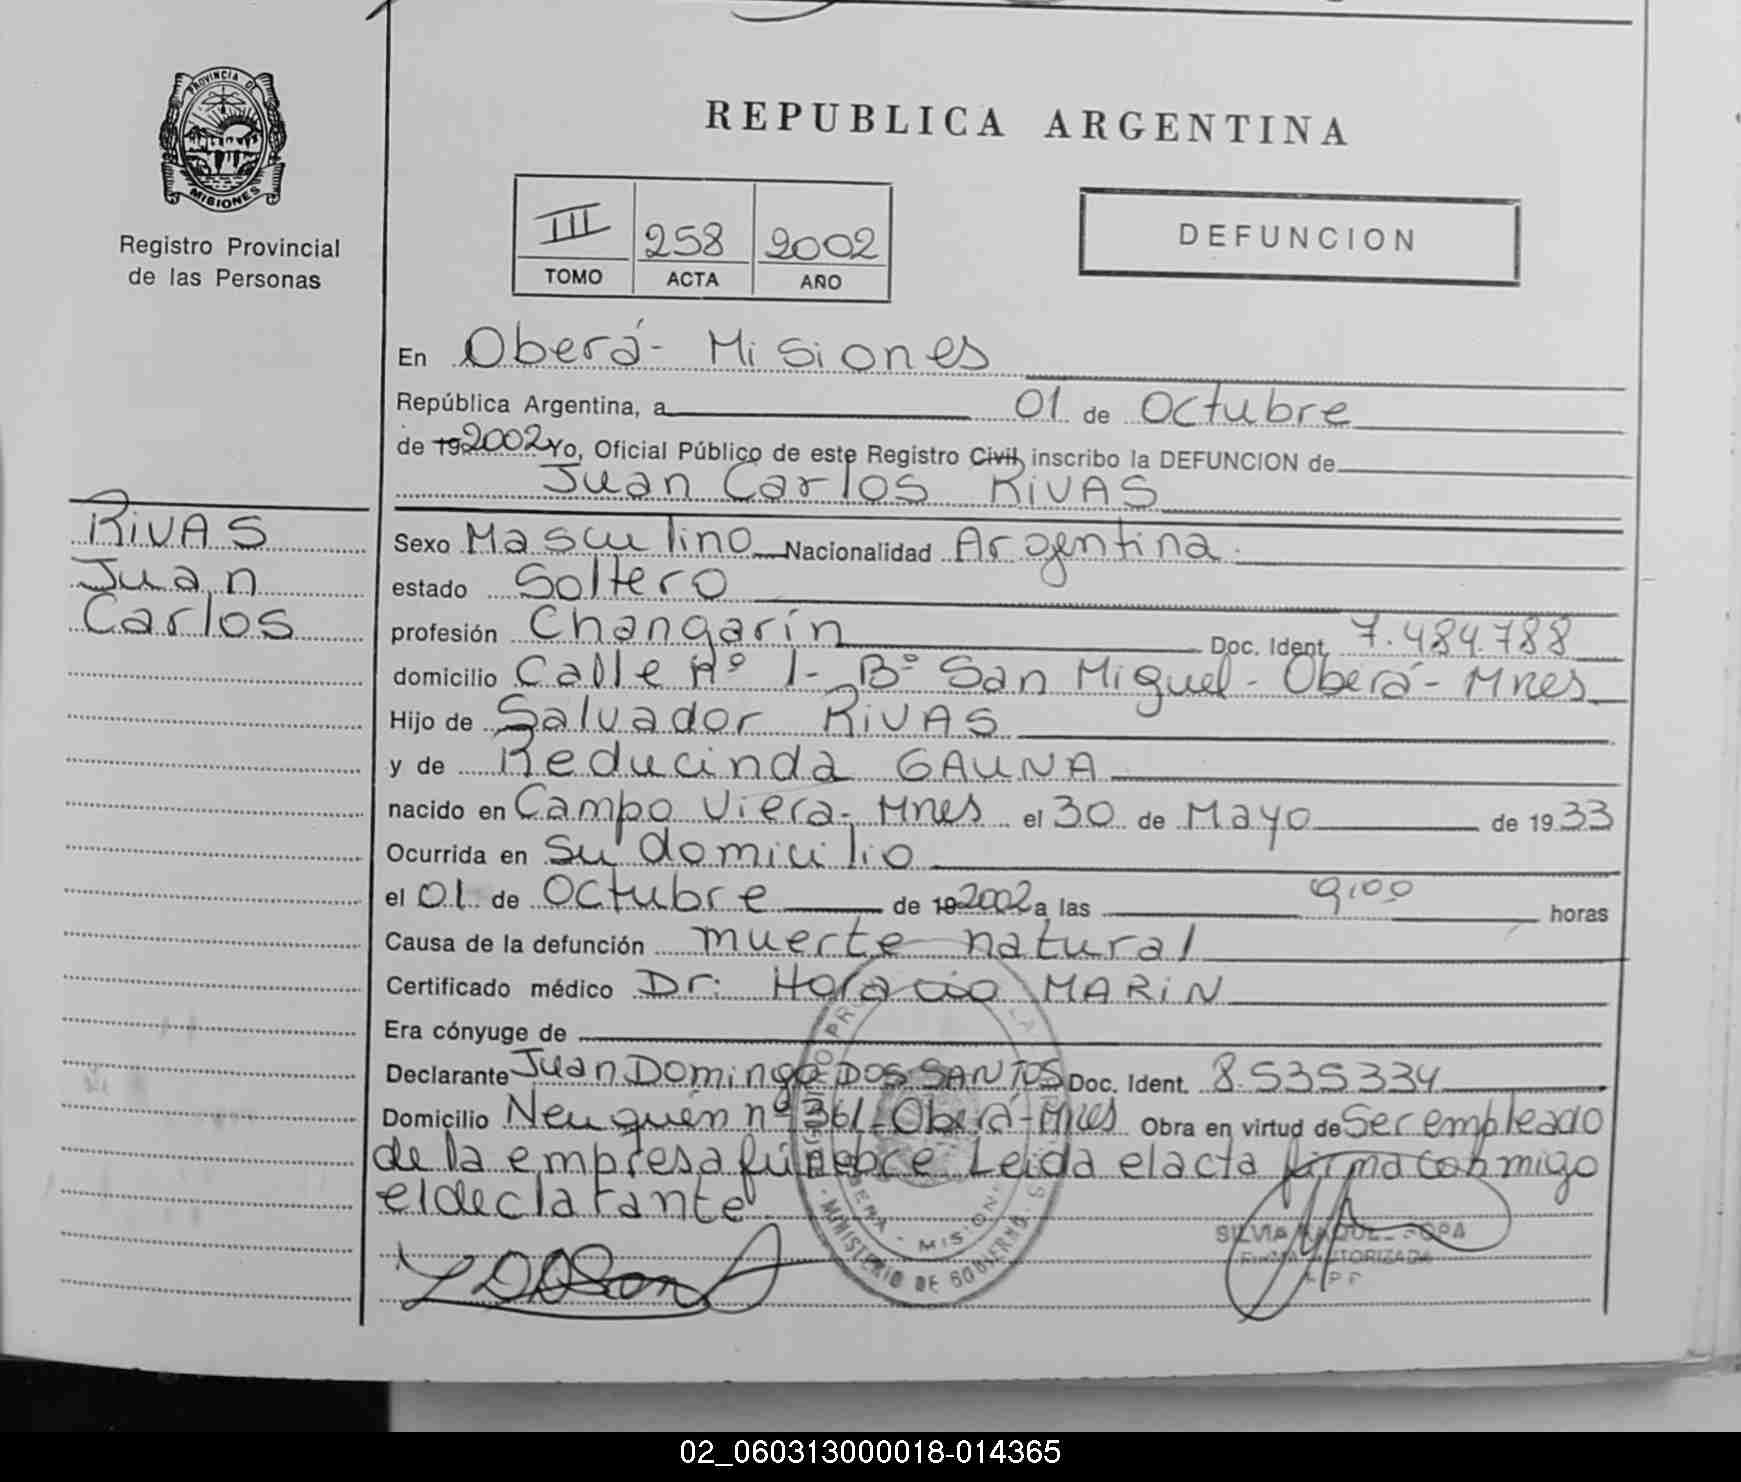 PROVINCIA DE
MISIONES
Registro Provincial
de las Personas
REPUBLICA ARGENTINA
III 258 2002
TOMO ACTA AÑO
DEFUNCION
En Oberá - Misiones
República Argentina, a 01 de Octubre
de 19 2002 Yo, Oficial Público de este Registro Civil, inscribo la DEFUNCION de
Juan Carlos RIVAS
RIVAS
Juan
Carlos
Sexo Masculino Nacionalidad Argentina.
estado Soltero
profesión Changarín Doc. Ident. 7.484.788
domicilio Calle Nº 1- Bº San Miguel - Oberá - Mnes
Hijo de Salvador RIVAS
y de Reducinda GAUNA
nacido en Campo Viera - Mnes el 30 de Mayo de 1933
Ocurrida en Su domicilio
el 01 de Octubre de 19 2002 a las 9,00 horas
Causa de la defunción muerte natural
Certificado médico Dr. Horacio MARIN
Era cónyuge de
Declarante Juan Domingo DOS SANTOS Doc. Ident. 8.535334
Domicilio Neuquén nº 361 - Oberá - Mnes Obra en virtud de Ser empleado
de la empresa fúnebre Leida el acta firma conmigo
el declarante
MISIONES
MINISTERIO DE GOBIERNO
SILVIA
02_060313000018-014365